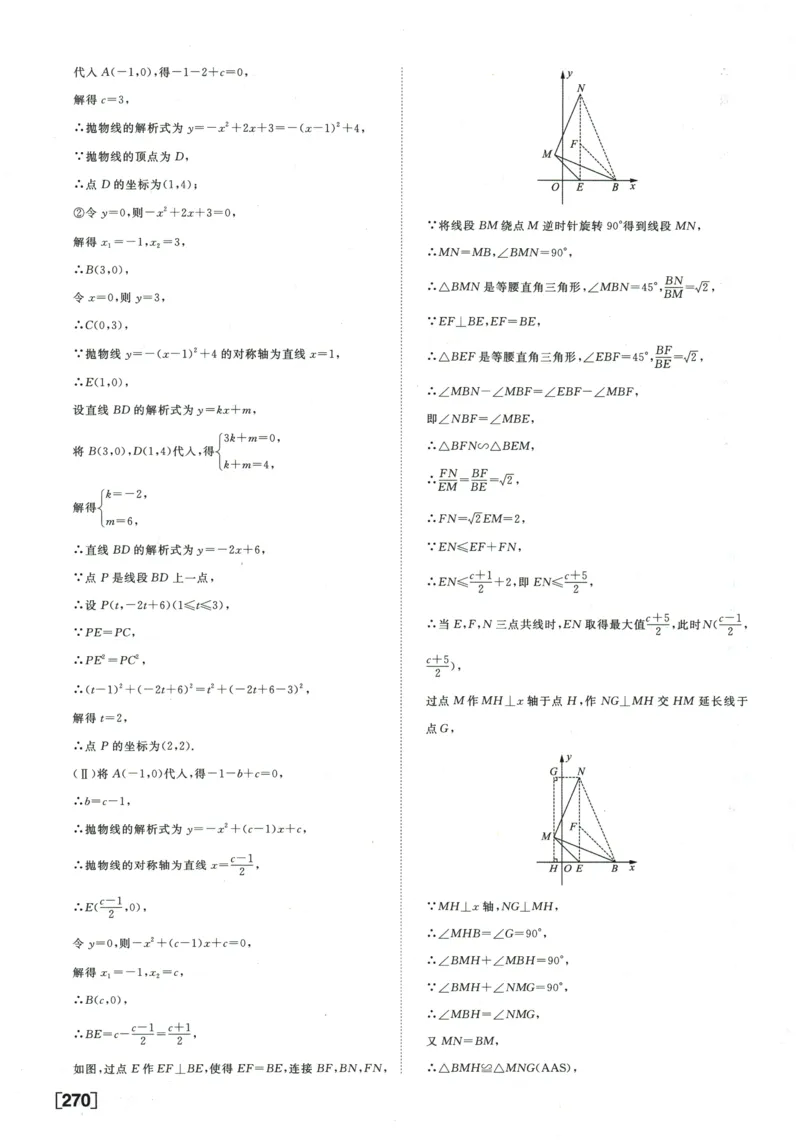 代入 A(-1,0),得-1-2+c=0,
解得 c=3,
∴抛物线的解析式为 y=-x²+2x+3=-(x-1)²+4,
∵抛物线的顶点为 D,
∴点 D 的坐标为(1,4);
②令 y=0,则-x²+2x+3=0,
解得 x₁=-1,x₂=3,
∴B(3,0),
令 x=0,则 y=3,
∴C(0,3),
∵抛物线 y=-(x-1)²+4 的对称轴为直线 x=1,
∴E(1,0),
设直线 BD 的解析式为 y=kx+m,
将 B(3,0),D(1,4)代入,得{3k+m=0,
k+m=4,
解得{k=-2,
m=6,
∴直线 BD 的解析式为 y=-2x+6,
∵点 P 是线段 BD 上一点,
∴设 P(t,-2t+6)(1≤t≤3),
∵PE=PC,
∴PE²=PC²,
∴(t-1)²+(-2t+6)²=t²+(-2t+6-3)²,
解得 t=2,
∴点 P 的坐标为(2,2).
(Ⅱ)将 A(-1,0)代入,得-1-b+c=0,
∴b=c-1,
∴抛物线的解析式为 y=-x²+(c-1)x+c,
∴抛物线的对称轴为直线 x=(c-1)/2,
∴E((c-1)/2,0),
令 y=0,则-x²+(c-1)x+c=0,
解得 x₁=-1,x₂=c,
∴B(c,0),
∴BE=c-(c-1)/2=(c+1)/2,
如图,过点 E 作 EF⊥BE,使得 EF=BE,连接 BF,BN,FN,
[270]
y
N
F
M
O E B x
∵将线段 BM 绕点 M 逆时针旋转 90°得到线段 MN,
∴MN=MB,∠BMN=90°,
∴△BMN 是等腰直角三角形,∠MBN=45°,BN/BM=√2,
∵EF⊥BE,EF=BE,
∴△BEF 是等腰直角三角形,∠EBF=45°,BF/BE=√2,
∴∠MBN-∠MBF=∠EBF-∠MBF,
即∠NBF=∠MBE,
∴△BFN∽△BEM,
∴FN/EM=BF/BE=√2,
∴FN=√2EM=2,
∵EN≤EF+FN,
∴EN≤(c+1)/2+2,即 EN≤(c+5)/2,
∴当 E,F,N 三点共线时,EN 取得最大值(c+5)/2,此时N((c-1)/2,
(c+5)/2),
过点 M 作 MH⊥x 轴于点 H,作 NG⊥MH 交 HM 延长线于
点 G,
y
G N
F
M
H O E B x
∵MH⊥x 轴,NG⊥MH,
∴∠MHB=∠G=90°,
∴∠BMH+∠MBH=90°,
∵∠BMH+∠NMG=90°,
∴∠MBH=∠NMG,
又 MN=BM,
∴△BMH≌△MNG(AAS),